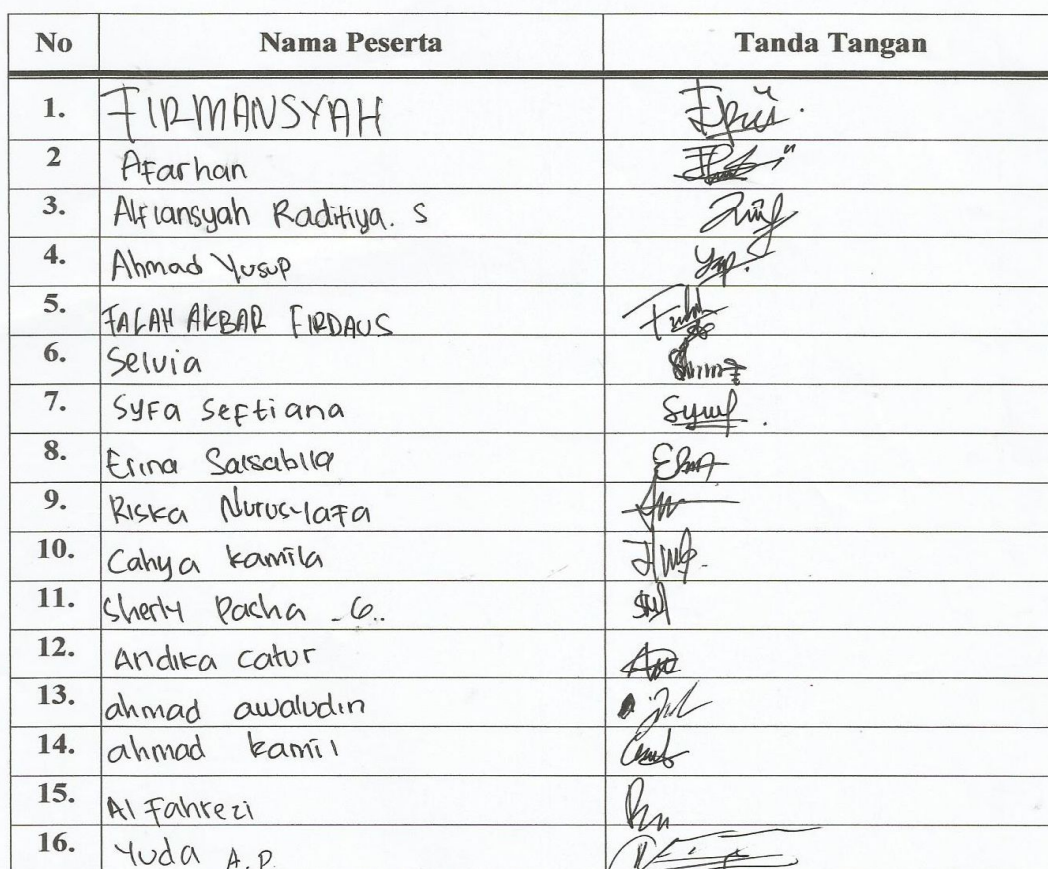 No Nama Peserta Tanda Tangan
1. FIRMANSYAH
2 Afarhan
3. Alfiansyah Raditiya. S
4. Ahmad Yusup
5. FALAH AKBAR FIRDAUS
6. Selvia
7. Syfa Seftiana
8. Erina Salsabila
9. Riska Nurusylafa
10. Cahya kamila
11. Sherly Pacha .G..
12. Andika catur
13. ahmad awaludin
14. ahmad kamil
15. Al Fahrezi
16. Yuda A.P.